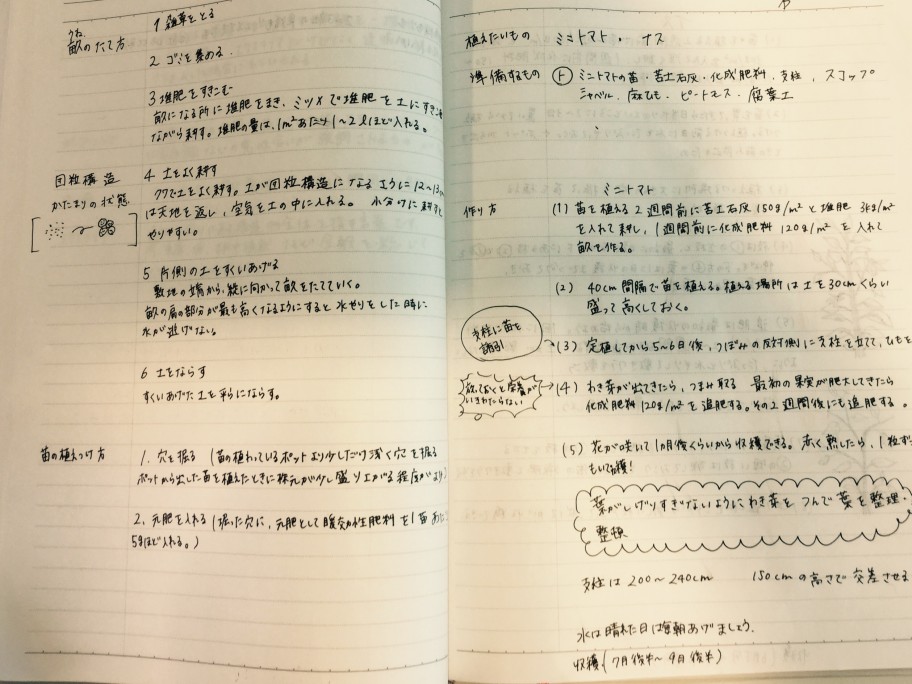 うね
畝のたて方
1 雑草をとる
2 ゴミを集める.
3 堆肥をすきこむ
畝になる所に堆肥をまき、ミツメで堆肥を土にすきこみ
ながら耕す。堆肥の量は、1m²あたり1〜2lほど入れる。
団粒構造
かたまりの状態
4 土をよく耕す
クワで土をよく耕す。土が団粒構造になるように12〜13cm
は天地を返し、空気を土の中に入れる。 水分けに耕すと
やりやすい。
5 片側の土をすくいあげる
敷地の端から、縦に向かって畝をたてていく。
畝の肩の部分が最も高くなるようにすると水やりをした時に
水が逃げない
6 土をならす
すくいあげた土を平らにならす。
苗の植えつけ方
1. 穴を掘る (苗の植わっているポットより少しだけ浅く穴を掘る
ポットから出した苗を植えたときに株元が少し盛り上がる程度がよい)
2. 元肥を入れる (掘った穴に、元肥として緩効性肥料を1苗あたり
5gほど入れる。)
植えたいもの ミニトマト・ ナス
準備するもの ト ミニトマトの苗・苦土石灰・化成肥料・支柱 , スコップ
シャベル, 麻ひも・ピートモス・腐葉土
ミニトマト
作り方 (1) 苗を植える2週間前に苦土石灰150g/m²と堆肥 3kg/m²
を入れて耕し、1週間前に化成肥料120g/m²を入れて
畝を作る。
(2) 40cm間隔で苗を植える。植える場所は土を30cmくらい
盛って高くしておく。
支柱に苗を
誘引!
(3) 定植してから5〜6日後、つぼみの反対側に支柱を立て、ひもを
放っておくと栄養が
いきわたらない
(4) わき芽が出てきたら、つまみ取る 最初の果実が肥大してきたら
化成肥料120g/m²を追肥する。その2週間後にも追肥する。
(5) 花が咲いて1カ月後くらいから収穫できる。赤く熟したら、1粒ず
もいで収穫!
葉がしげりすぎないようにわき芽をつんで葉を整理・
整頓
支柱は200〜240cm 150cmの高さで交差させる
水は晴れた日は毎朝あげましょう.
収穫(7月後半〜9月後半)